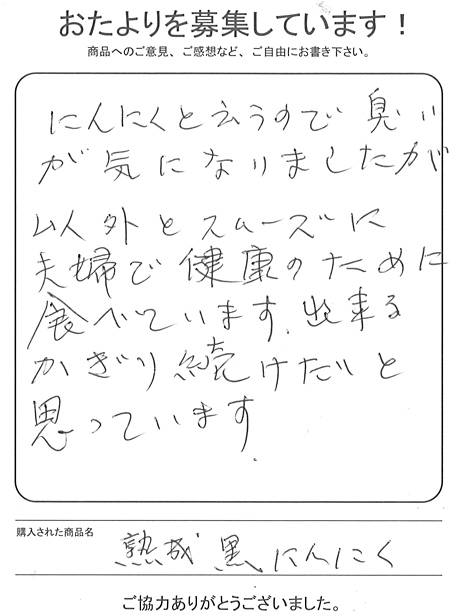 おたよりを募集しています！
商品へのご意見、ご感想など、ご自由にお書き下さい。
にんにくと云うので臭い
が気になりましたが
以外とスムーズに
夫婦で健康のために
食べています。出来る
かぎり続けたいと
思っています.
購入された商品名
熟成黒にんにく
ご協力ありがとうございました。